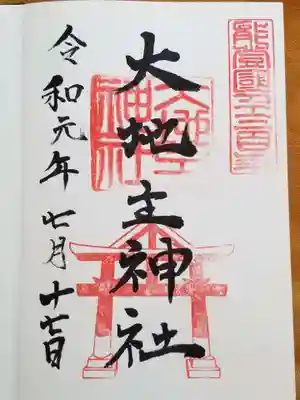 能登國
大地主神社
大地主
神社
令和元年七月十七日